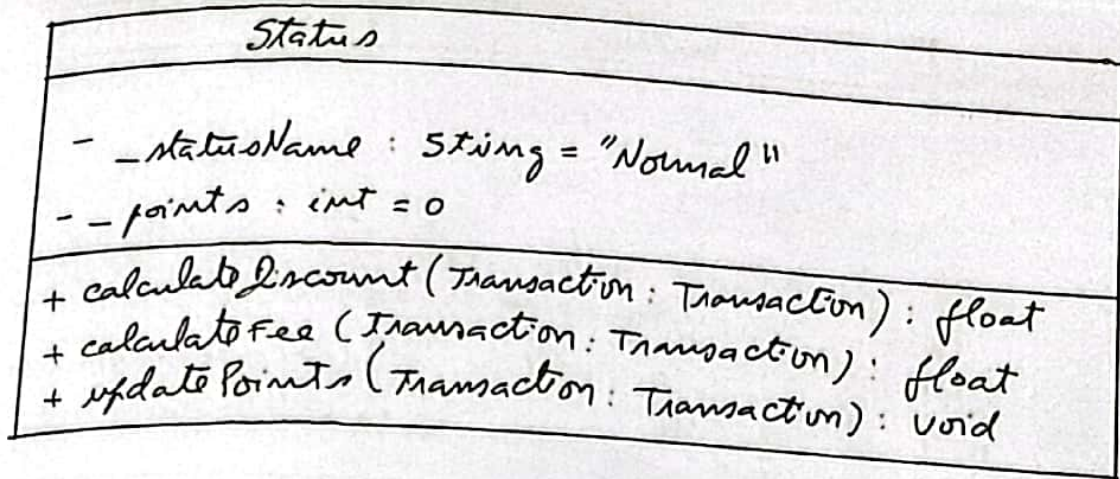 Status
- _statusName : String = "Normal"
- _points : int = 0
+ calculateDiscount (Transaction : Transaction) : float
+ calculateFee (Transaction : Transaction) : float
+ updatePoints (Transaction : Transaction) : void